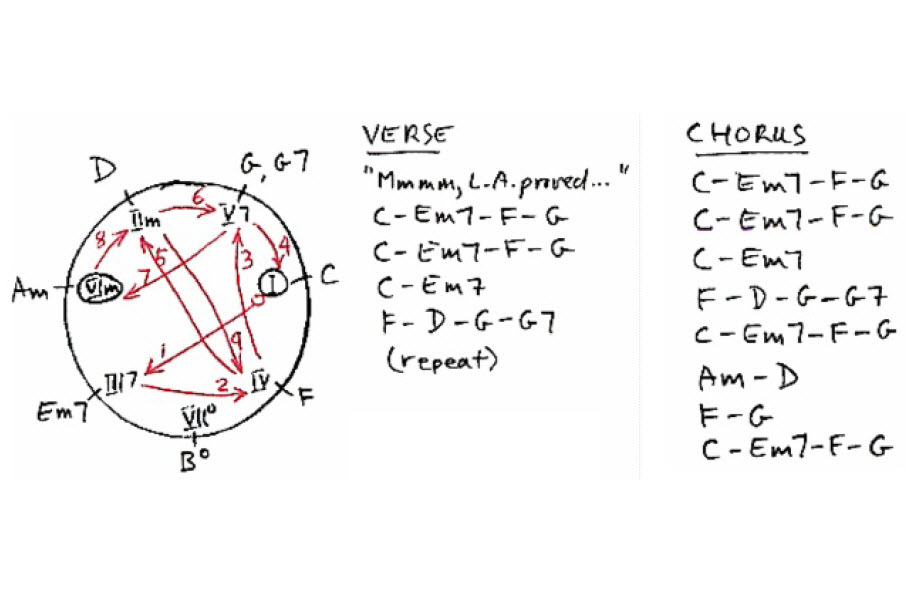 D
G, G7
IIm
6
V7
8
5
3
4
Am
VIm
7
I
C
1
9
Em7
III7
2
IV
F
VII°
B°
VERSE
"Mmmm, L.A. proved..."
C-Em7-F-G
C-Em7-F-G
C-Em7
F-D-G-G7
(repeat)
CHORUS
C-Em7-F-G
C-Em7-F-G
C-Em7
F-D-G-G7
C-Em7-F-G
Am-D
F-G
C-Em7-F-G